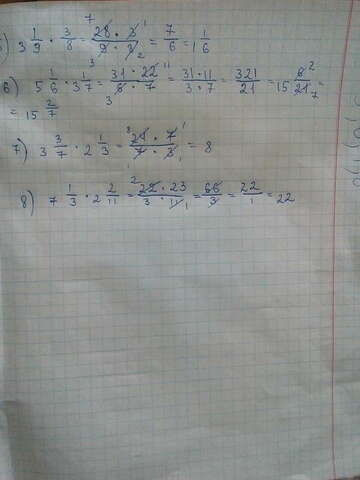 5) 3 1/9 · 3/8 = 28 · 3 / 9 · 8 = 7/6 = 1 1/6
6) 5 1/6 · 3 1/7 = 31 · 22 / 6 · 7 = 31 · 11 / 3 · 7 = 321/21 = 15 6/21 =
= 15 2/7
7) 3 3/7 · 2 1/3 = 24 · 7 / 7 · 3 = 8
8) 7 1/3 · 2 2/11 = 22 · 23 / 3 · 11 = 66/3 = 22/1 = 22